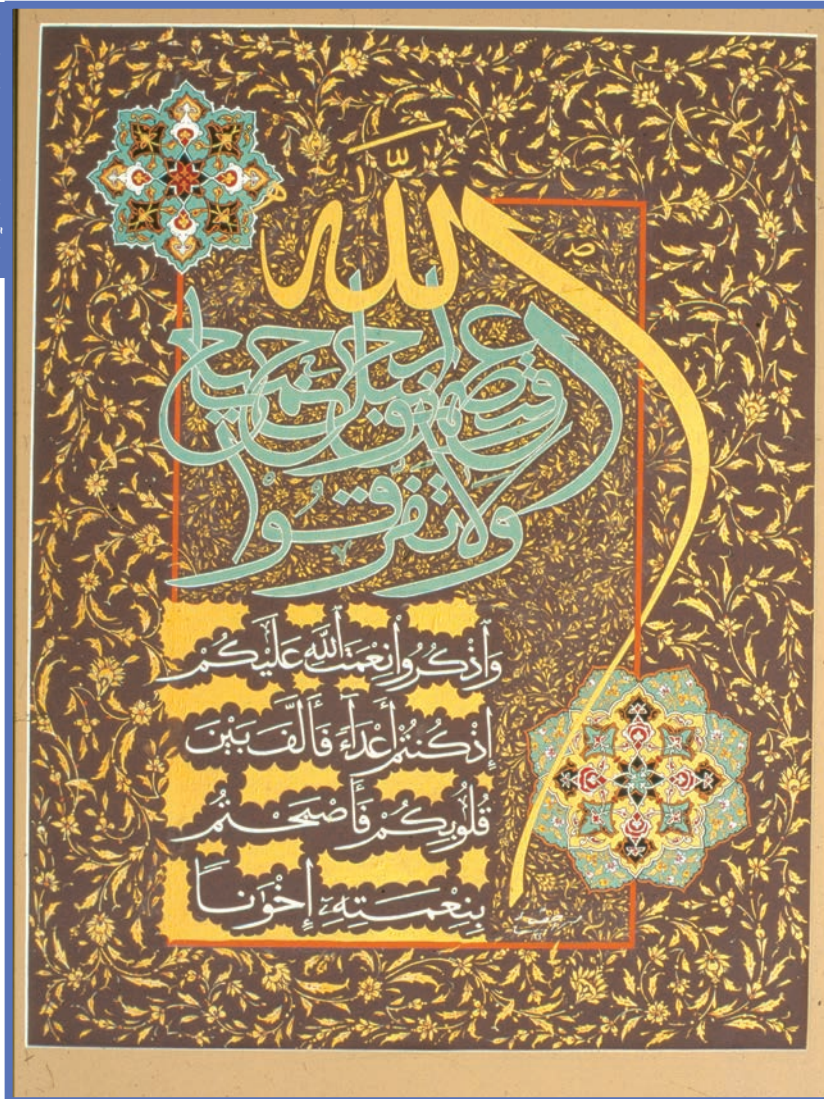 واعتصموا بحبل الله جميعا
ولا تفرقوا
وَٱذْكُرُوا۟ نِعْمَتَ ٱللَّهِ عَلَيْكُمْ
إِذْ كُنتُمْ أَعْدَآءً فَأَلَّفَ بَيْنَ
قُلُوبِكُمْ فَأَصْبَحْتُم
بِنِعْمَتِهِۦٓ إِخْوَٰنًا